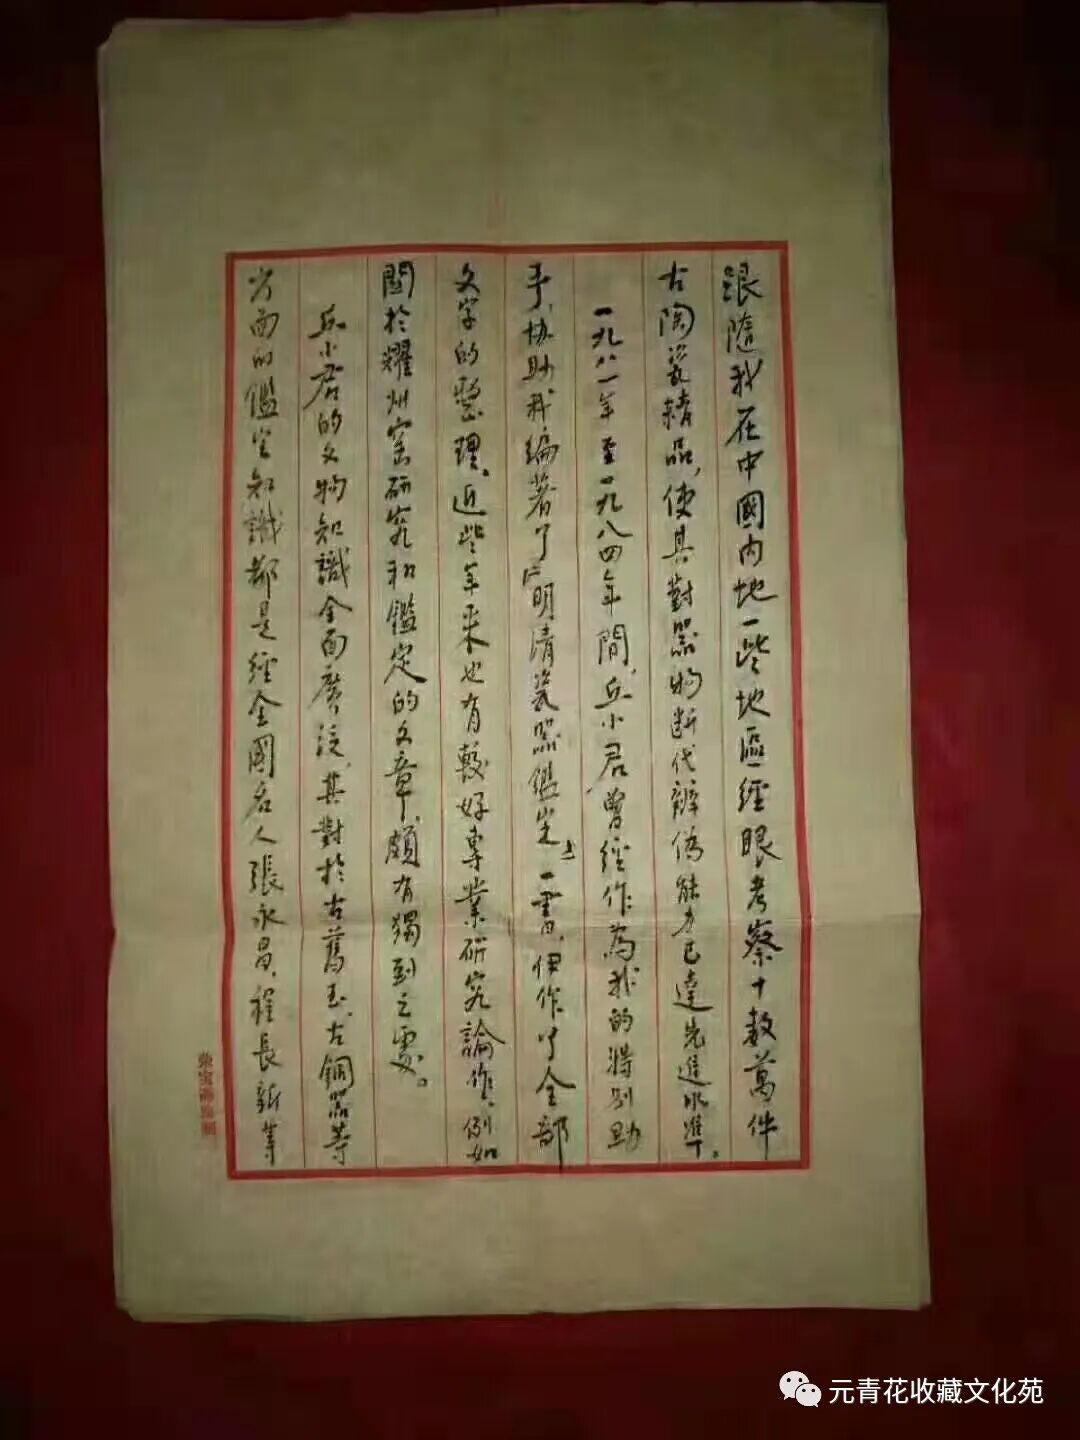 跟隨我在中國内地一些地區經眼考察十数萬件
古陶瓷精品，使其對器物断代辨偽能力已達先進水準。
一九八一年至一九八四年間，丘小君曾經作為我的特别助
手，协助我编著了『明清瓷器鑑定』一書，伊作了全部
文字的整理。近些年来也有較好専業研究論作，例如
関扵耀州窑研究和鑑定的文章，頗有獨到之處。
丘小君的文物知識全面廣泛，其對扵古舊玉、古铜器等
方面的鑑定知識都是經全國名人張永昌、程長新等
榮宝斋
元青花收藏文化苑